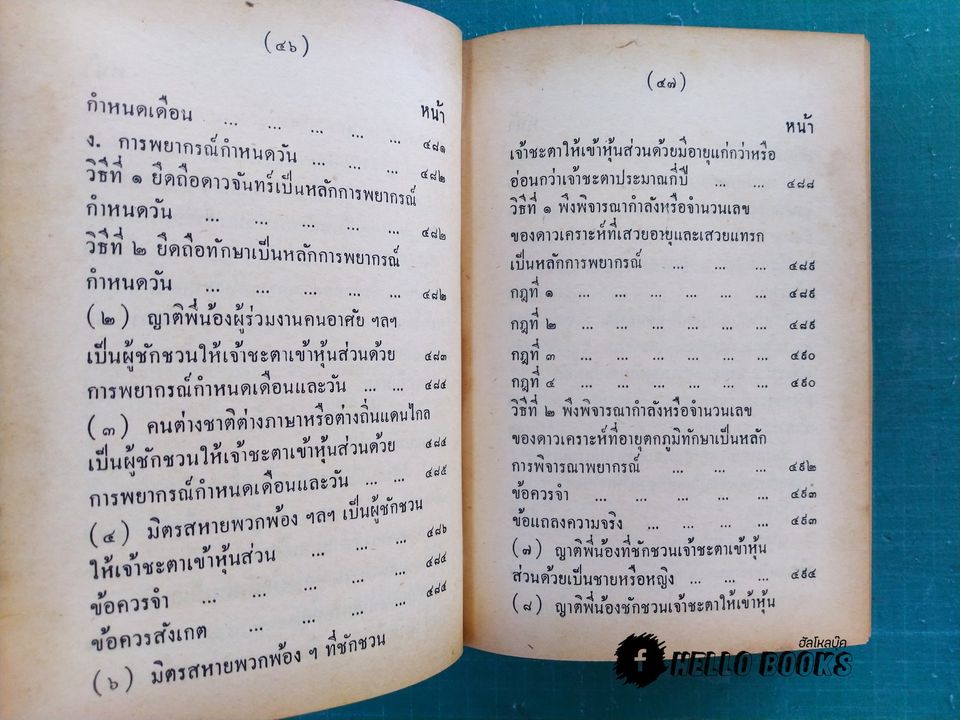 (๔๖)
หน้า
กำหนดเดือน ... ... ... ... ... ๔๘๑
ง. การพยากรณ์กำหนดวัน ... ... ... ๔๘๒
วิธีที่ ๑ ยึดถือดาวจันทร์เป็นหลักการพยากรณ์
กำหนดวัน ... ... ... ... ... ๔๘๒
วิธีที่ ๒ ยึดถือทักษาเป็นหลักการพยากรณ์
กำหนดวัน ... ... ... ... ... ๔๘๒
(๒) ญาติพี่น้องผู้ร่วมงานคนอาศัย ฯลฯ
เป็นผู้ชักชวนให้เจ้าชะตาเข้าหุ้นส่วนด้วย ๔๘๓
การพยากรณ์กำหนดเดือนและวัน ... ... ๔๘๔
(๓) คนต่างชาติต่างภาษาหรือต่างถิ่นแดนไกล
เป็นผู้ชักชวนให้เจ้าชะตาเข้าหุ้นส่วนด้วย ๔๘๔
การพยากรณ์กำหนดเดือนและวัน ... ... ๔๘๕
(๔) มิตรสหายพวกพ้อง ฯลฯ เป็นผู้ชักชวน
ให้เจ้าชะตาเข้าหุ้นส่วน ... ... ... ๔๘๖
ข้อควรจำ ... ... ... ...
ข้อควรสังเกต ... ... ... ...
(๖) มิตรสหายพวกพ้อง ๆ ที่ชักชวน
(๔๗)
หน้า
เจ้าชะตาให้เข้าหุ้นส่วนด้วยมีอายุแก่กว่าหรือ
อ่อนกว่าเจ้าชะตาประมาณกี่ปี ... ... ๔๘๘
วิธีที่ ๑ พึงพิจารณากำลังหรือจำนวนเลข
ของดาวเคราะห์ที่เสวยอายุและเสวยแทรก
เป็นหลักการพยากรณ์ ... ... ... ๔๘๙
กฎที่ ๑ ... ... ... ... ... ... ๔๘๙
กฎที่ ๒ ... ... ... ... ... ... ๔๘๙
กฎที่ ๓ ... ... ... ... ... ... ๔๙๐
กฎที่ ๔ ... ... ... ... ... ... ๔๙๐
วิธีที่ ๒ พึงพิจารณากำลังหรือจำนวนเลข
ของดาวเคราะห์ที่อายุตกภูมิทักษาเป็นหลัก
การพิจารณาพยากรณ์ ... ... ... ๔๙๒
ข้อควรจำ ... ... ... ... ... ๔๙๓
ข้อแถลงความจริง ... ... ... ... ๔๙๓
(๗) ญาติพี่น้องที่ชักชวนเจ้าชะตาเข้าหุ้น
ส่วนด้วยเป็นชายหรือหญิง ... ... ... ๔๙๔
(๘) ญาติพี่น้องชักชวนเจ้าชะตาให้เข้าหุ้น
ฮัลโหลบุ๊ค
HELLO BOOKS